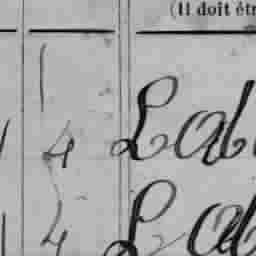 (Il doit êtr
4 Lab
4 Lab